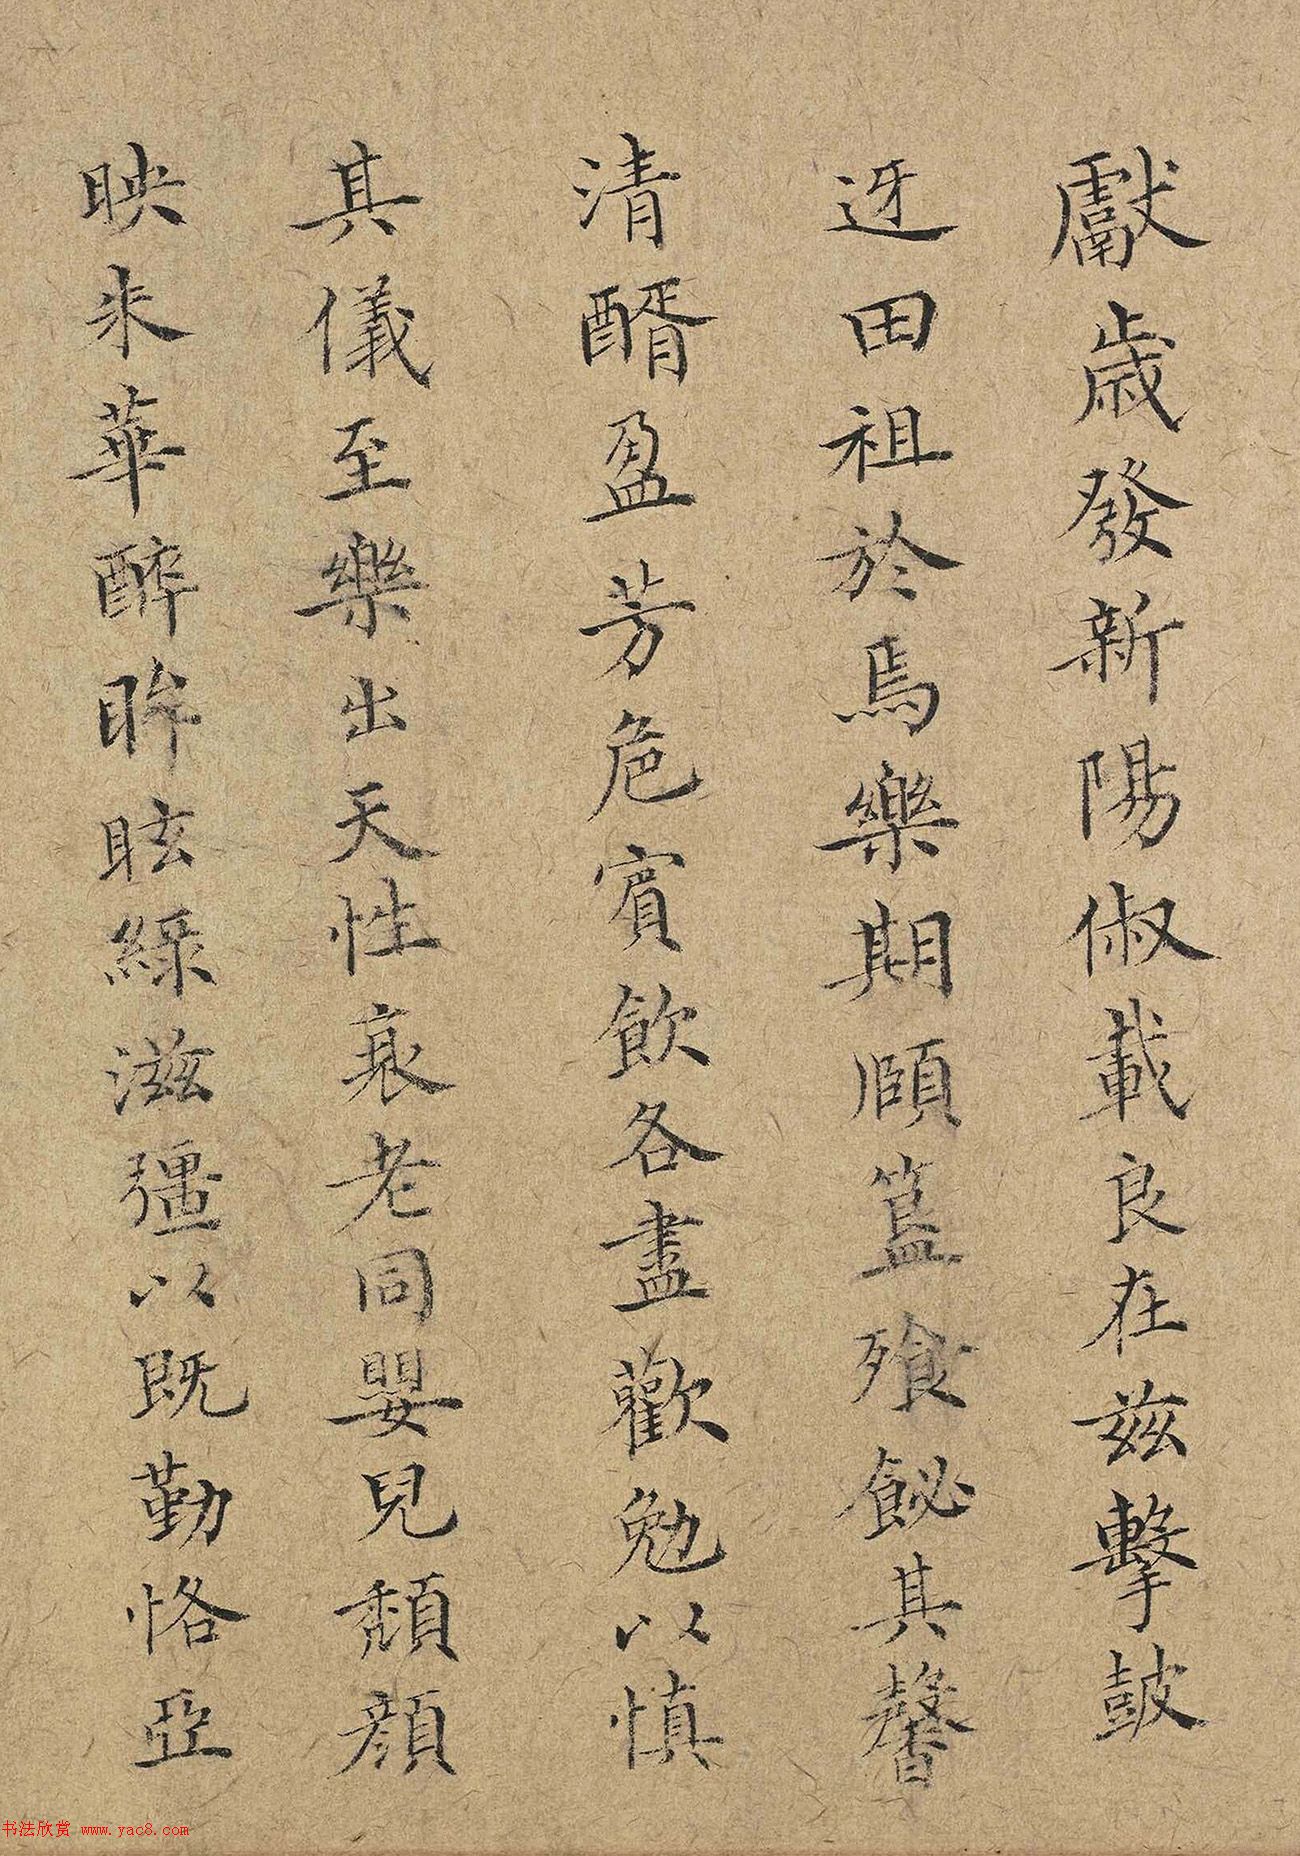 獻歲發新陽俶載良在兹擊鼓
迓田祖於焉樂期頤簋飱飶其馨
清醑盈芳巵賓飲各盡歡勉以慎
其儀至樂出天性衰老同嬰兒頳顔
映朱華醉眸眩綠滋彊以既勤恪亞
书法欣赏 www.yac8.com